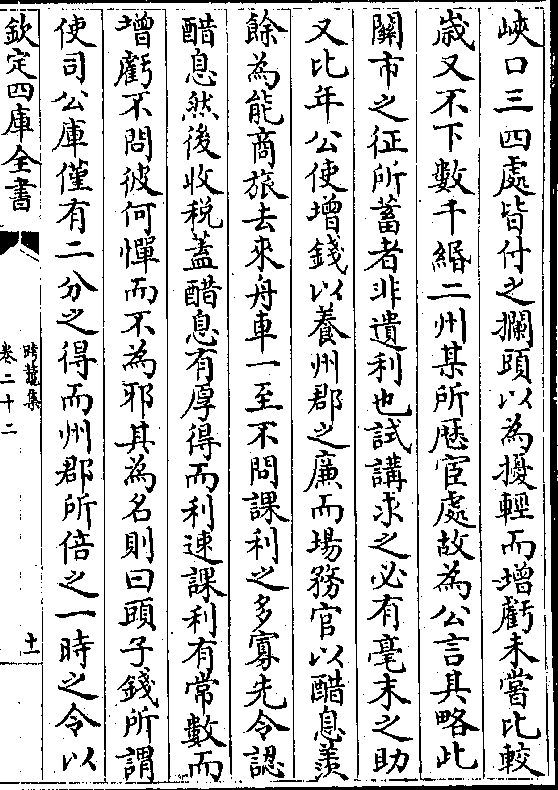 峽口三四處皆付之攔頭以為擾輕而增虧未嘗比較
嵗又不下數千緡二州某所歴宦處故為公言其略此
關市之征所蓄者非遺利也試講求之必有毫末之助
又比年公使增錢以養州郡之廉而場務官以醋息羨
餘為能商旅去來舟車一至不問課利之多寡先令認
醋息然後收税蓋醋息有厚得而利速課利有常數而
增虧不問彼何憚而不為邪其為名則曰頭子錢所謂
使司公庫僅有二分之得而州郡所倍之一時之令以
欽定四庫全書
卷二十二
十一